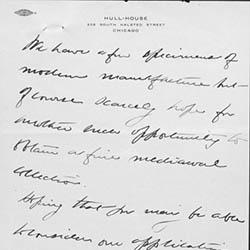 HULL-HOUSE
335 SOUTH HALSTED STREET
CHICAGO
We have a few specimens of
modern manufacture but
of course scarcely hope for
another such opportunity to
obtain a fine mediaeval
collection.
Hoping that you may be able
to consider our application